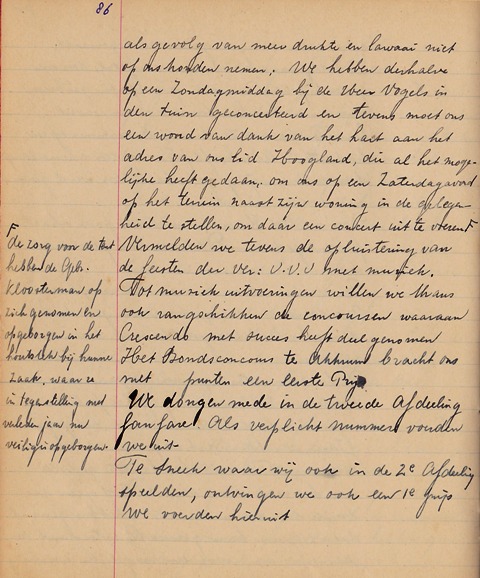 86
als gevolg van meer drukte en lawaai niet
op ons konden nemen. We hebben derhalve
op een Zondagmiddag bij de Weer Vogels in
den tuin geconcerteerd en tevens moet ons
een woord van dank van het hart aan het
adres van ons lid Hoogland, die al het moge-
lijke heeft gedaan, om ons op een Zaterdagavond
op het terrein naast zijn woning in de gelegen-
heid te stellen, om daar een concert uit te voeren. F
Vermelden we tevens de opluistering van
de feesten der Ver: V.V.V met muziek.
Tot muziekuitvoeringen willen we thans
ook rangschikken de concoursen waaraan
Crescendo met succes heeft deelgenomen
Het Bondsconcours te Akkrum bracht ons
met punten een eerste Prijs
We dongen mede in de tweede Afdeeling
fanfare. Als verplicht nummer voerden
we uit
Te Sneek waar wij ook in de 2e Afdeeling
speelden, ontvingen we ook een 1e prijs
We voerden hier uit
F
de zorg voor de tent
hebben de Gebr.
Kloosterman op
zich genomen en
opgeborgen in het
houtstek bij hunne
Zaak, waar ze
in tegenstelling met
verleden jaar nu
veilig is opgeborgen.